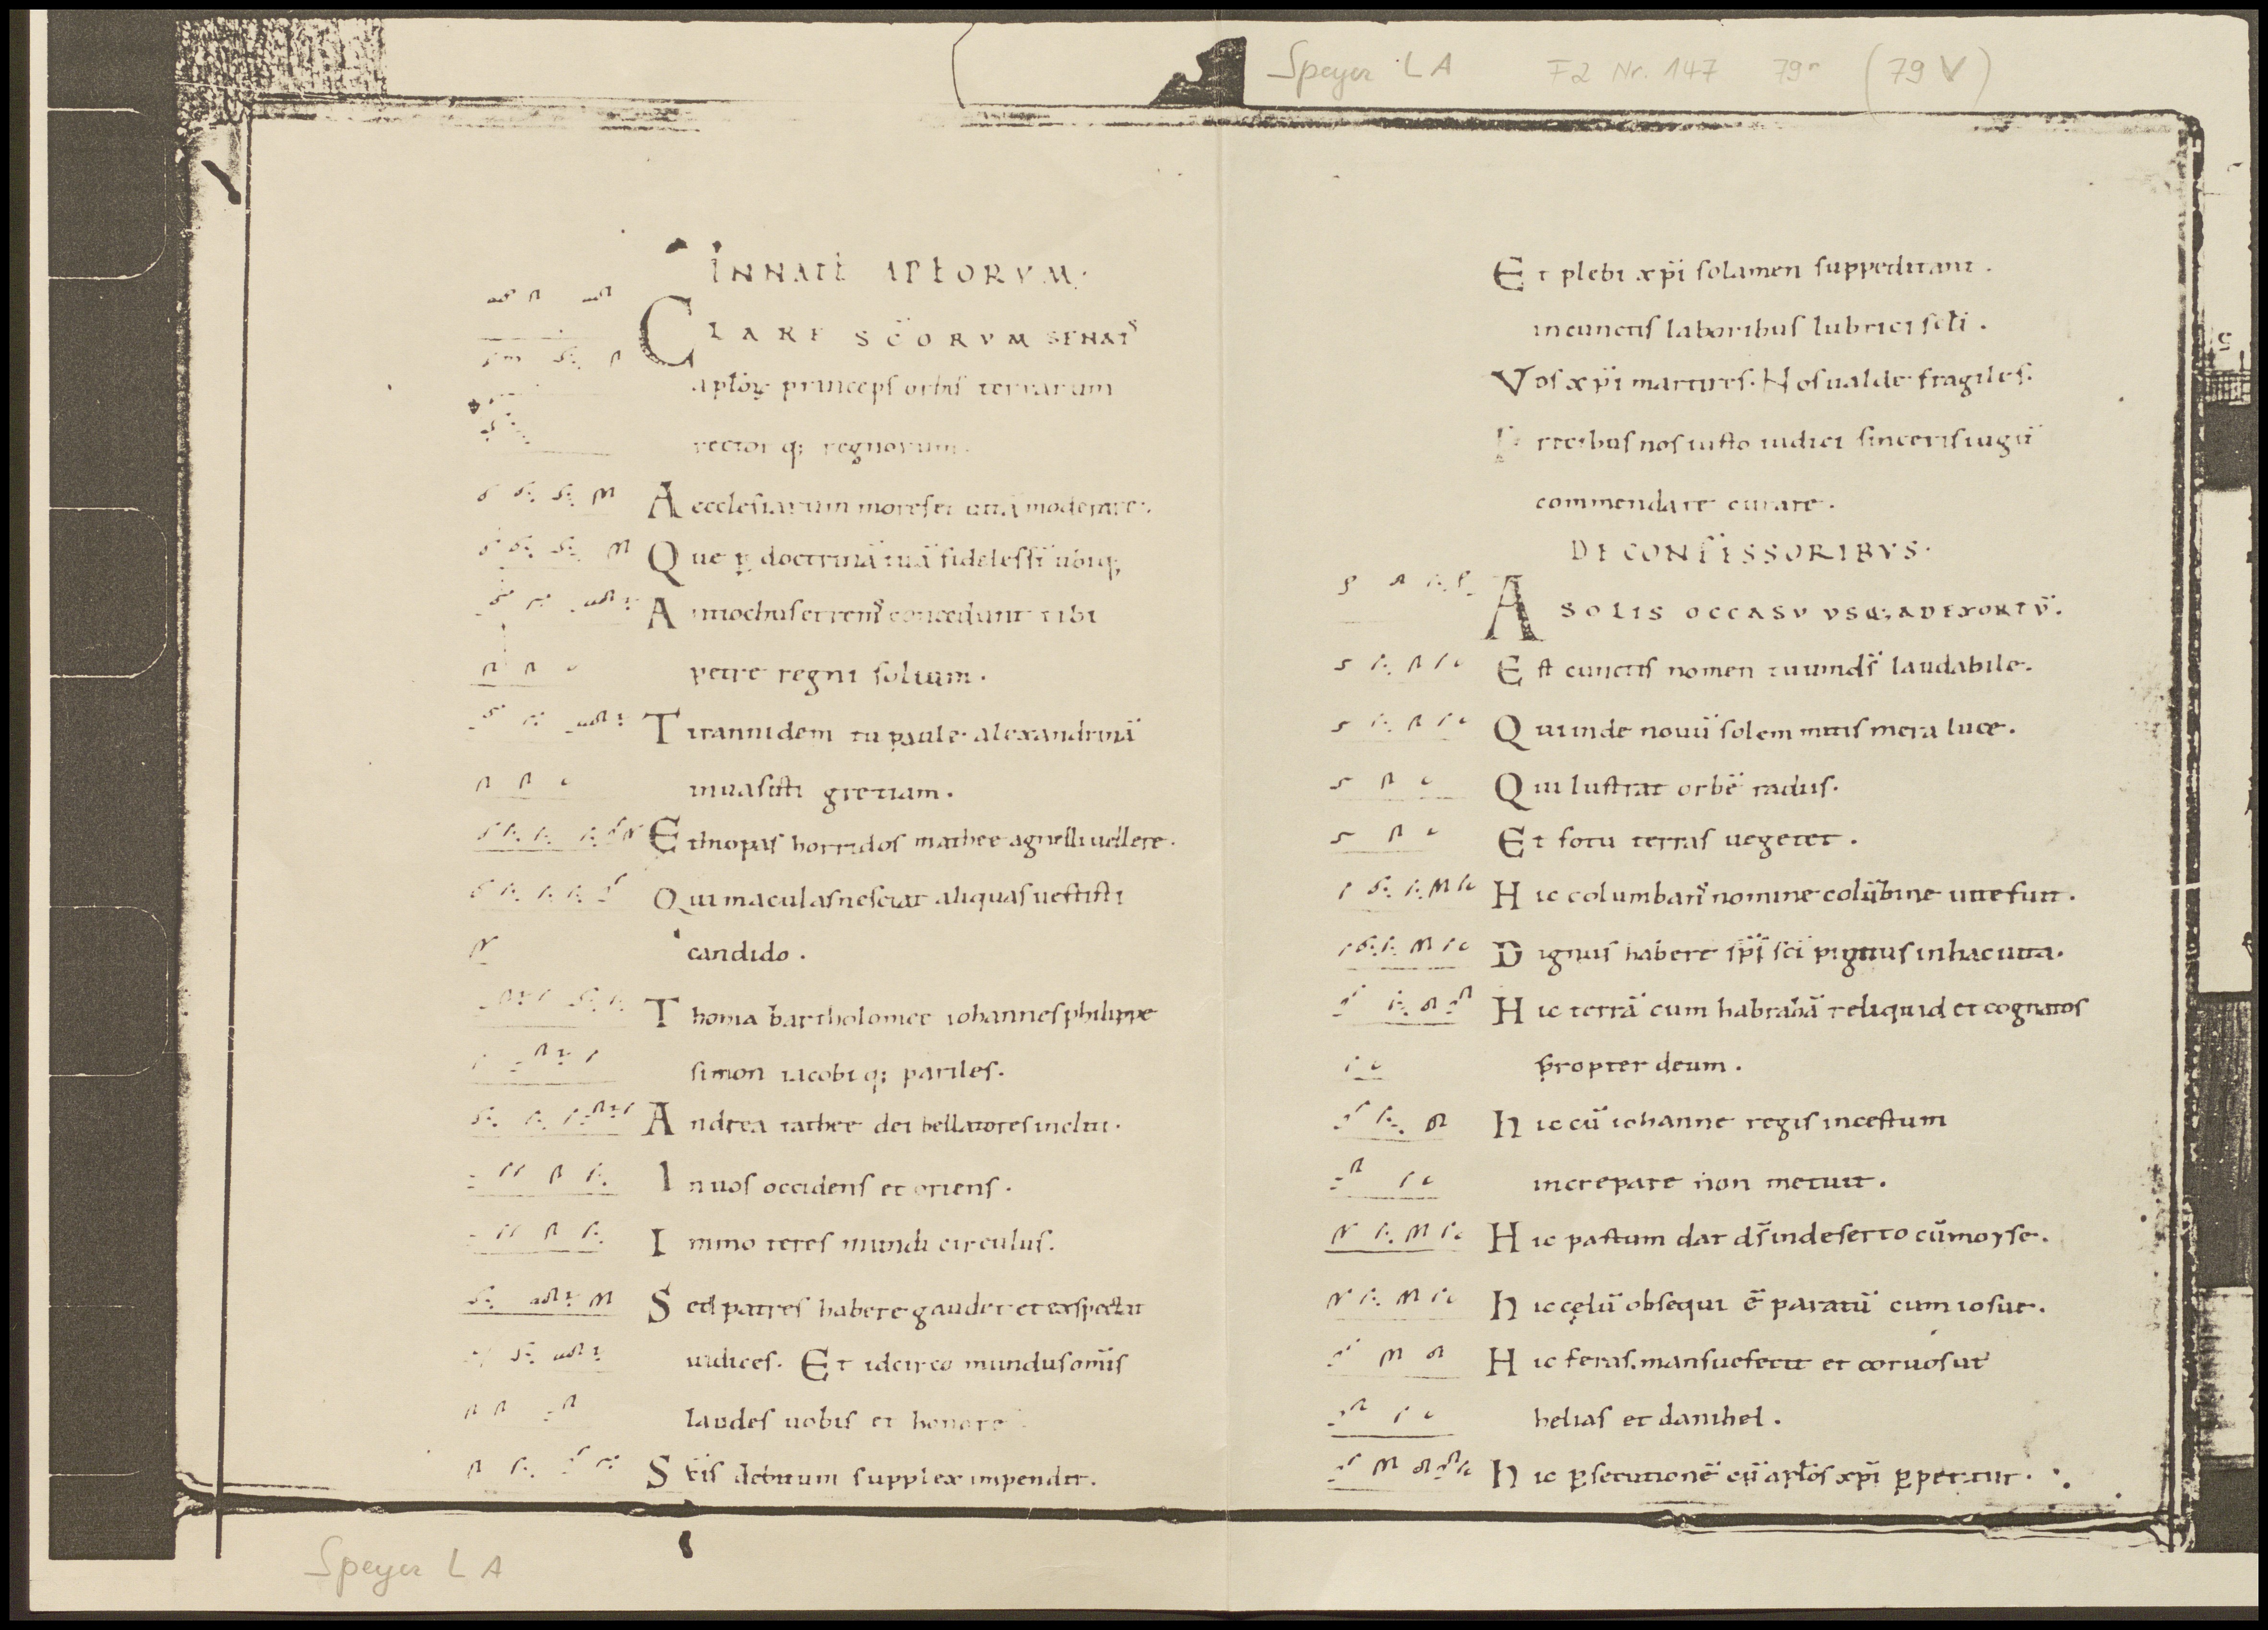 Speyer LA F2 Nr. 147 79r (79 V)
IN NATƚ APƚORVM.
CLARE SC̄ORVM SENAT᷒
apƚoꝝ princeps orbis terrarum
rector q; regnorum.
A ecclesiarum mores et uitā moderare.
Que ꝑ doctrinā tuā fideles s̄t ubiq;
Antiochus et rem᷒ concedunt tibi
petre regni solium.
Tirannidem tu paule alexandrinā
inuasisti gretiam.
Ethiopas horridos mathee agnelli uellere.
Qui maculas nesciat aliquas uestisti
candido.
Thoma bartholomee iohannes philippe
simon iacobi q; pariles.
Andrea tathee dei bellatores incliti.
In uos occidens et oriens.
Immo teres mundi circulus.
Sed patres habere gaudet et exspectat
iudices. Et idcirco mundus om̄is
laudes uobis et honore
Sc̄is debitum supplex impendit.
Et plebi xp̄i solamen suppeditant.
in cunctis laboribus lubrici sc̄li.
Vos xp̄i martires. Nos ualde fragiles.
Precibus nos iusto iudici sinceris iugit̄
commendare curate.
DE CONFESSORIBVS.
A SOLIS OCCASV VSQ; AD EXORTV̄.
Est cunctis nomen tuum ds̄ laudabile.
Qui inde nouū solem mittis mera luce.
Qui lustrat orbē radiis.
Et fotu terras uegetet.
Hic columban᷒ nomine colūbine uite fuit.
Dignus habere sp̄s sc̄i pignus in hac uita.
Hic terrā cum habrahā reliquid et cognatos
propter deum.
Hic cū iohanne regis incestum
increpare non metuit.
Hic pastum dat ds̄ in deserto cū moyse.
Hic cęlū obsequi ē paratū cum iosue.
Hic feras mansuefecit et coruos ut
helias et danihel.
Hic ꝑsecutionē cū apƚos xp̄i ꝑpetitur.
Speyer LA